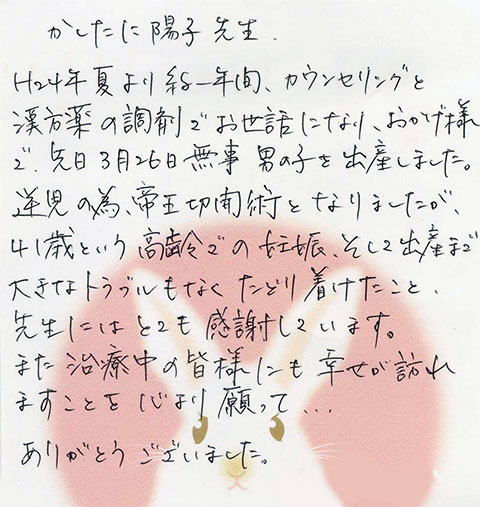 かしたに陽子先生.
H24年夏より約一年間、カウンセリングと
漢方薬の調剤でお世話になり、おかげ様
で、先日3月26日無事 男の子を出産しました。
逆児の為、帝王切開術となりましたが、
41歳という高齢での妊娠、そして出産まで
大きなトラブルもなくたどり着けたこと、
先生にはとても感謝しています。
また治療中の皆様にも幸せが訪れ
ますことを心より願って...
ありがとうございました。